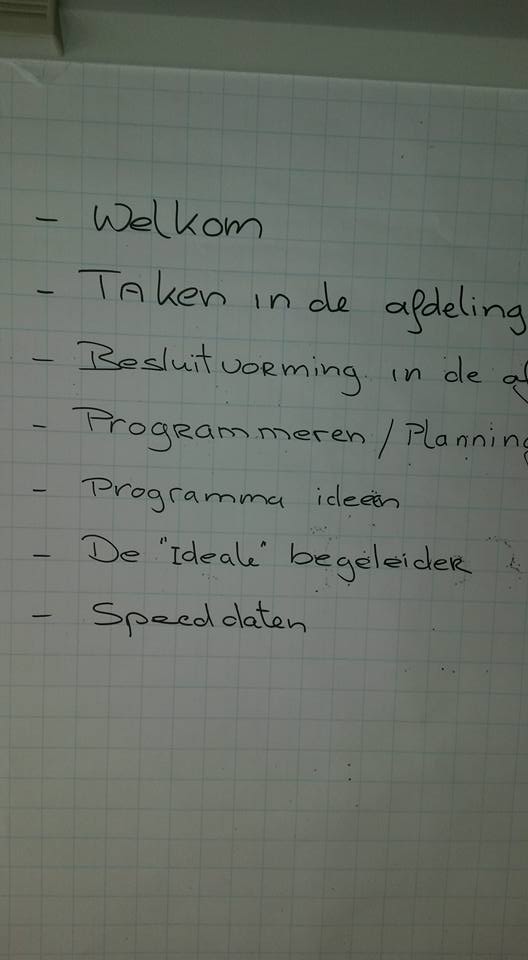 - Welkom
- Taken in de afdeling
- Besluitvorming in de af
- Programmeren / Planning
- Programma ideeën
- De "Ideale" begeleider
- Speeddaten